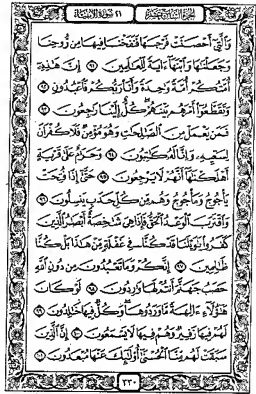 الجزء السابع عشر ٢١ سورة الأنبياء
وَٱلَّتِىٓ أَحْصَنَتْ فَرْجَهَا فَنَفَخْنَا فِيهَا مِن رُّوحِنَا
وَجَعَلْنَٰهَا وَٱبْنَهَآ ءَايَةً لِّلْعَٰلَمِينَ ٩١ إِنَّ هَٰذِهِۦٓ
أُمَّتُكُمْ أُمَّةً وَٰحِدَةً وَأَنَا۠ رَبُّكُمْ فَٱعْبُدُونِ ٩٢
وَتَقَطَّعُوٓا۟ أَمْرَهُم بَيْنَهُمْ كُلٌّ إِلَيْنَا رَٰجِعُونَ ٩٣
فَمَن يَعْمَلْ مِنَ ٱلصَّٰلِحَٰتِ وَهُوَ مُؤْمِنٌ فَلَا كُفْرَانَ
لِسَعْيِهِۦ وَإِنَّا لَهُۥ كَٰتِبُونَ ٩٤ وَحَرَٰمٌ عَلَىٰ قَرْيَةٍ
أَهْلَكْنَٰهَآ أَنَّهُمْ لَا يَرْجِعُونَ ٩٥ حَتَّىٰٓ إِذَا فُتِحَتْ
يَأْجُوجُ وَمَأْجُوجُ وَهُم مِّن كُلِّ حَدَبٍ يَنسِلُونَ ٩٦
وَٱقْتَرَبَ ٱلْوَعْدُ ٱلْحَقُّ فَإِذَا هِىَ شَٰخِصَةٌ أَبْصَٰرُ ٱلَّذِينَ
كَفَرُوا۟ يَٰوَيْلَنَا قَدْ كُنَّا فِى غَفْلَةٍ مِّنْ هَٰذَا بَلْ كُنَّا
ظَٰلِمِينَ ٩٧ إِنَّكُمْ وَمَا تَعْبُدُونَ مِن دُونِ ٱللَّهِ
حَصَبُ جَهَنَّمَ أَنتُمْ لَهَا وَٰرِدُونَ ٩٨ لَوْ كَانَ
هَٰٓؤُلَآءِ ءَالِهَةً مَّا وَرَدُوهَا وَكُلٌّ فِيهَا خَٰلِدُونَ ٩٩
لَهُمْ فِيهَا زَفِيرٌ وَهُمْ فِيهَا لَا يَسْمَعُونَ ١٠٠ إِنَّ ٱلَّذِينَ
سَبَقَتْ لَهُم مِّنَّا ٱلْحُسْنَىٰٓ أُو۟لَٰٓئِكَ عَنْهَا مُبْعَدُونَ ١٠١
٣٣٠